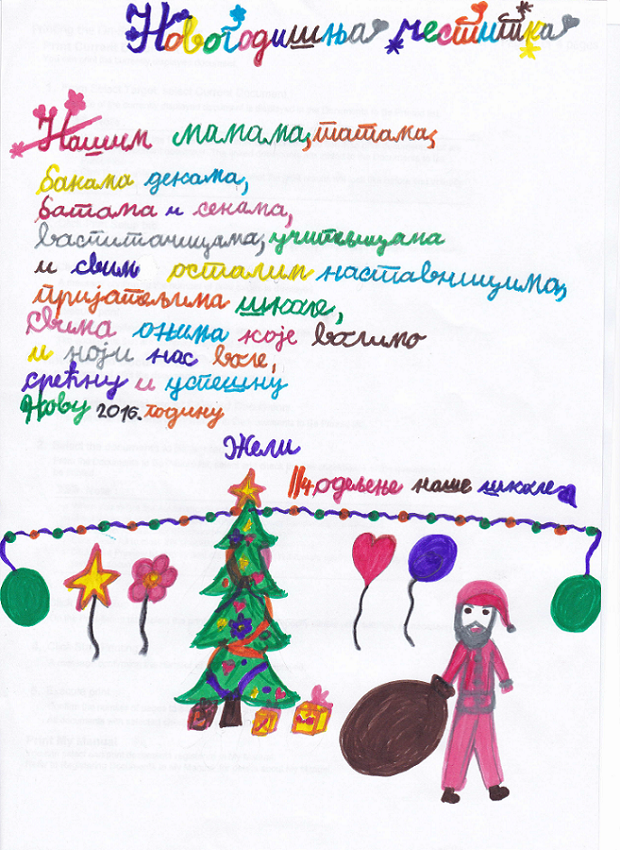 Новогодишња честитка
Нашим мамама, татама,
бакама декама,
батама и секама,
васпитачицама, учитељицама
и свим осталим наставницима,
пријатељима школе,
свима онима које волимо
и који нас воле,
срећну и успешну
Нову 2016. годину
Жели
II4. одељење наше школе